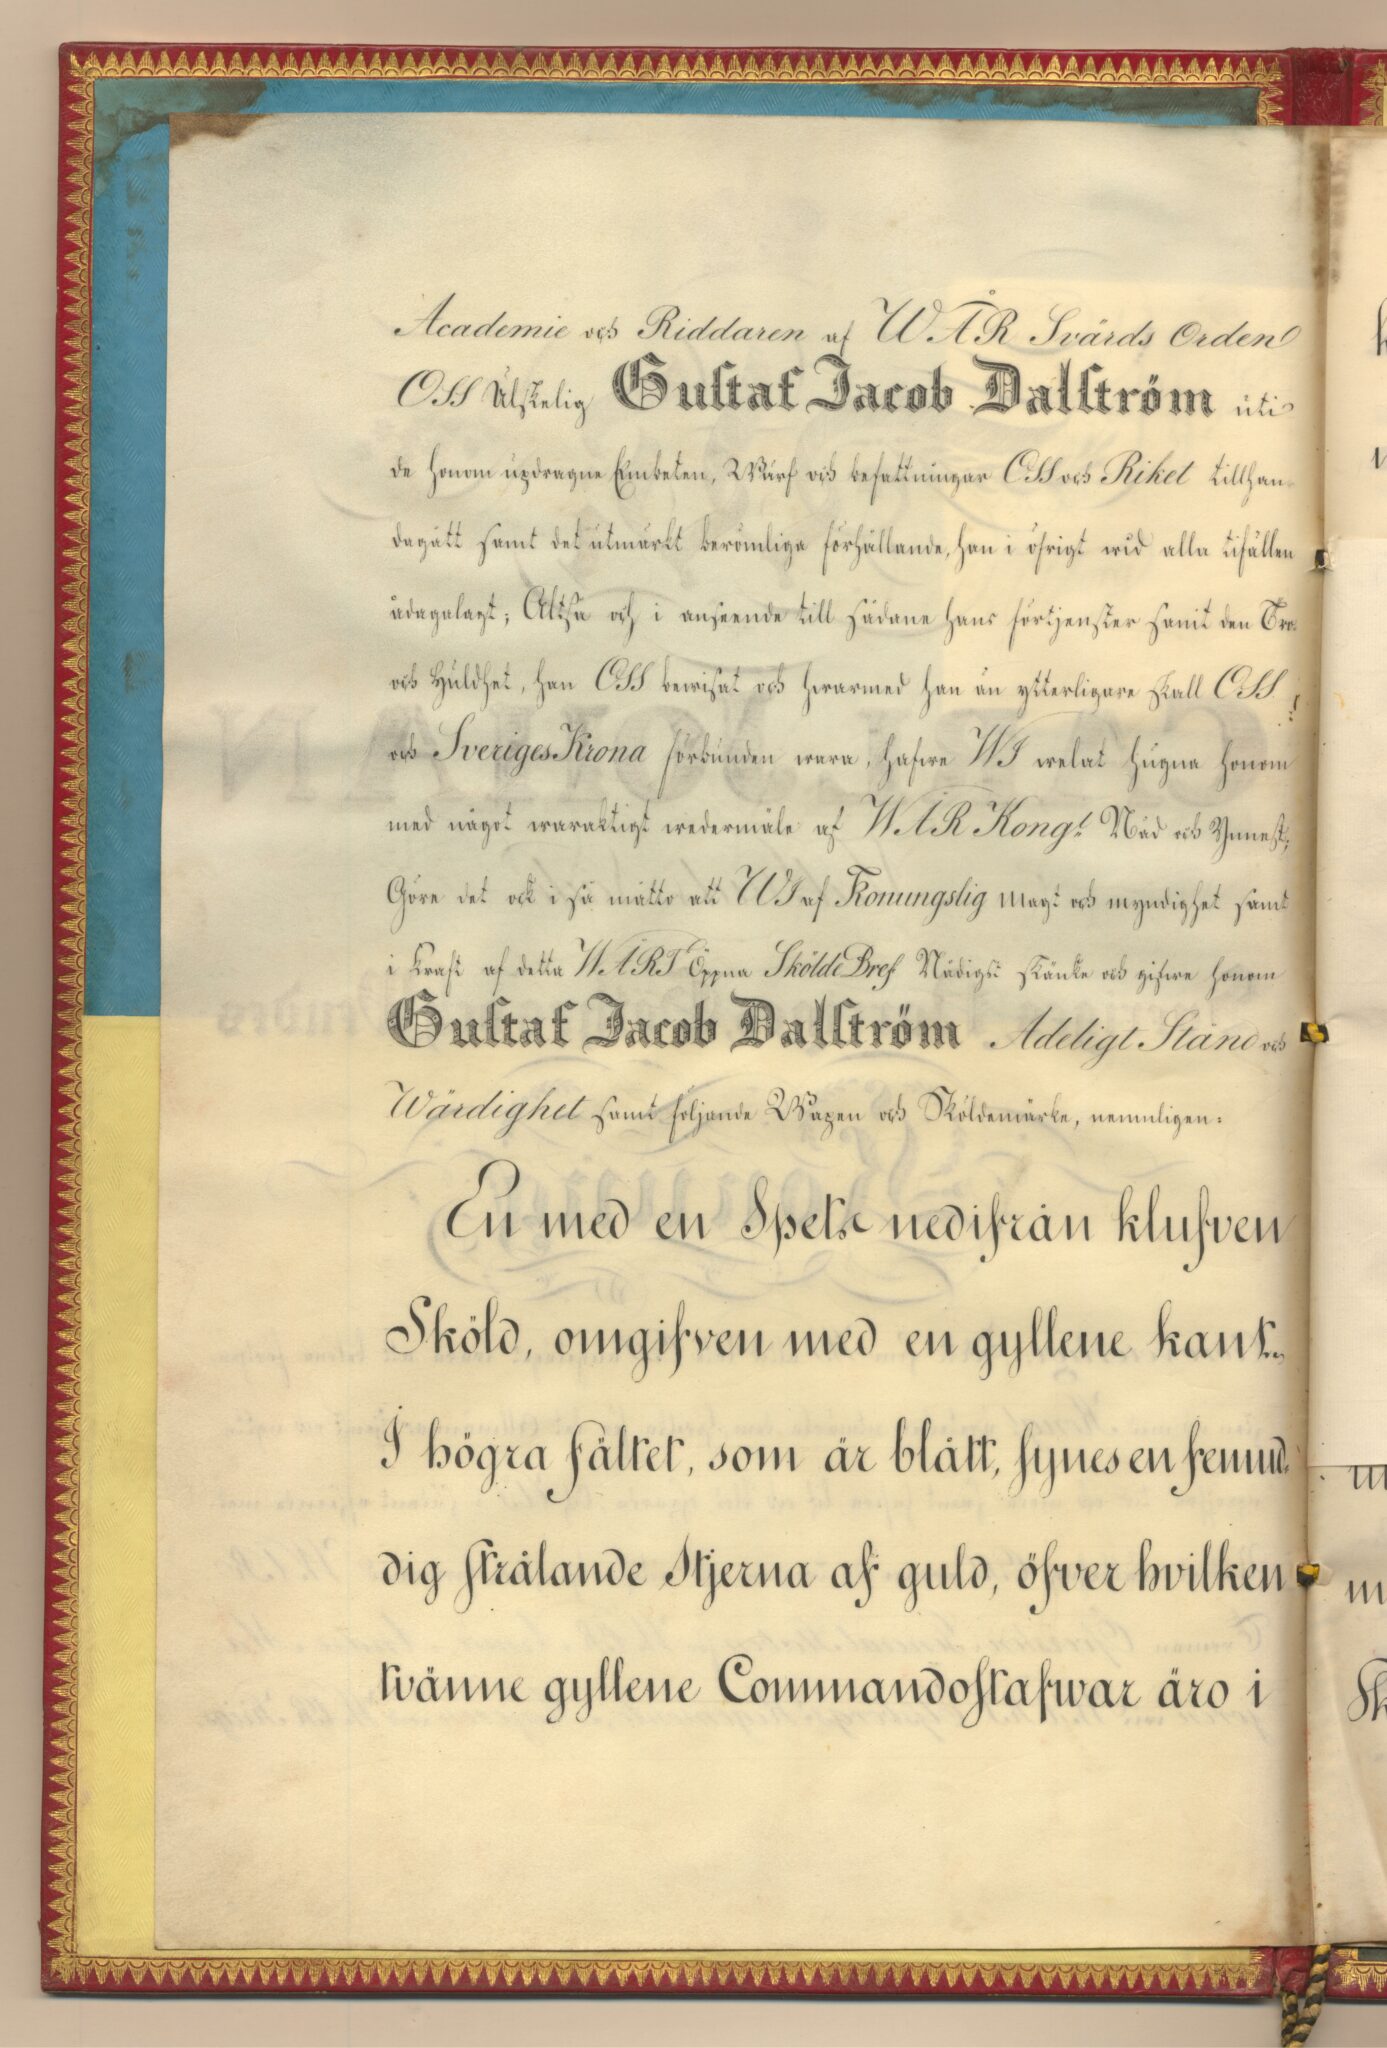 Academie och Riddaren af WÅR Svärds Orden
OSS Älskelig Gustaf Jacob Dalström uti
de honom updragne Embeten, Värf och befattningar OSS och Riket tillhan-
dagått samt det utmärkt berömliga förhållande, han i öfrigt wid alla tifällen
ådagalagt; Altså och i anseende till sådane hans förtjenster samt den Tro-
och Huldhet, han OSS bewisat och hwarmed han än ytterligare skall OSS
och Sveriges Krona förbunden wara, hafwe WI welat hugna honom
med något waraktigt wedermäle af WÅR Kongl. Nåd och Ynnest;
Göre det ock i så måtto att WI af Konungslig magt och myndighet samt
i kraft af detta WÅRT Öppna Skölde Bref Nådigst skänke och gifwe honom
Gustaf Jacob Dalström Adeligt Stånd och
Wärdighet samt följande Vapen och Sköldemärke, nemnligen:
En med en Spets nedifrån klufven
Sköld, omgifven med en gyllene kant.
I högra fältet, som är blått, synes en femud-
dig strålande Stjerna af guld, öfver hvilken
tvänne gyllene Commandostafwar äro i